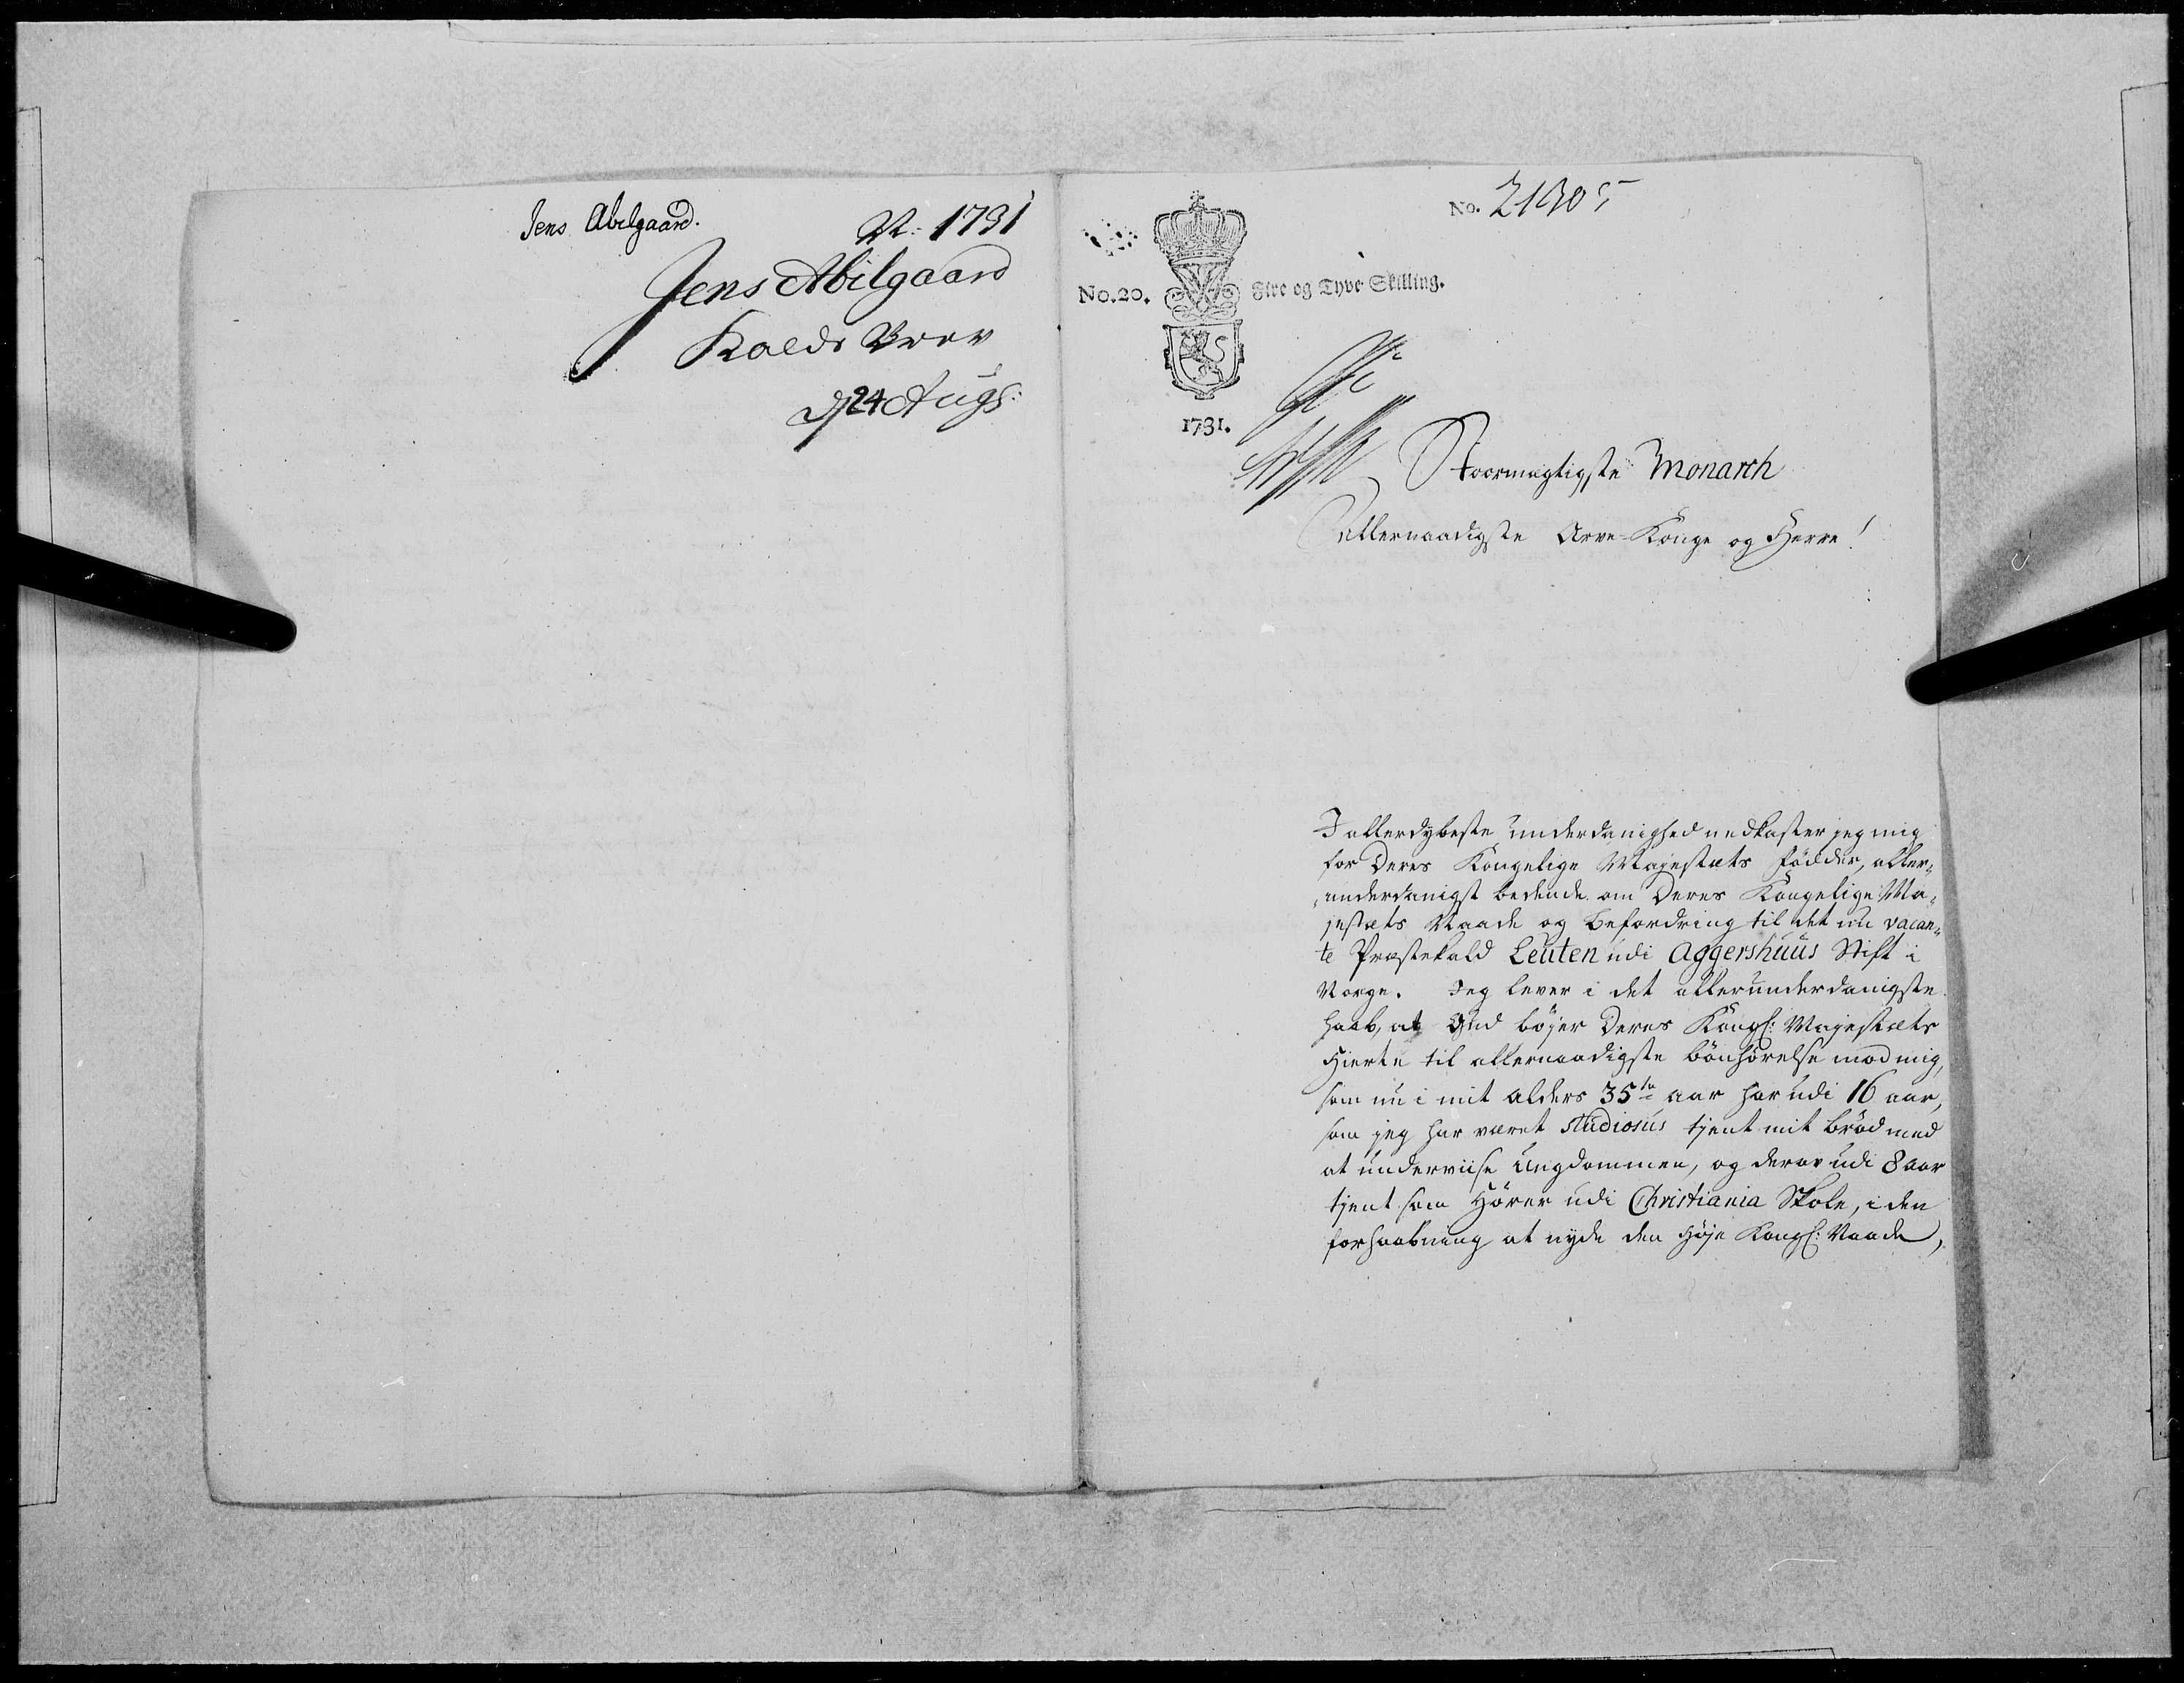 Jens Abilgaard.
N: 1731
Jens Abilgaard
Kalds Brev
d 24 Augs:
No. 21305
No. 20.
Fire og Tyve Skilling.
1731.
Stoormægtigste Monarch
Allernaadigste Arve-Konge og Herre!
I allerdybeste underdanighed nedkaster jeg mig
for Deres Kongelige Majestæts fødder, aller„
„underdanigst bedende om Deres Kongelige Ma„
jestæts Naade og befordring til det nu vacan„
te Præstekald Leuten udi Aggershuus Stift i
Norge. Jeg lever i det allerunderdanigste
haab, at Gud bøjer Deres Kongl: Majestæts
Hierte til allernaadigste bønhørelse mod mig,
som nu i mit alders 35te aar har udi 16 aar,
som jeg har været studiosus tjent mit brød med
at underviise Ungdommen, og derav udi 8 aar
tjent som Hører udi Christiania Skole, i den
forhaabning at nyde den Høje Kongl: Naade,